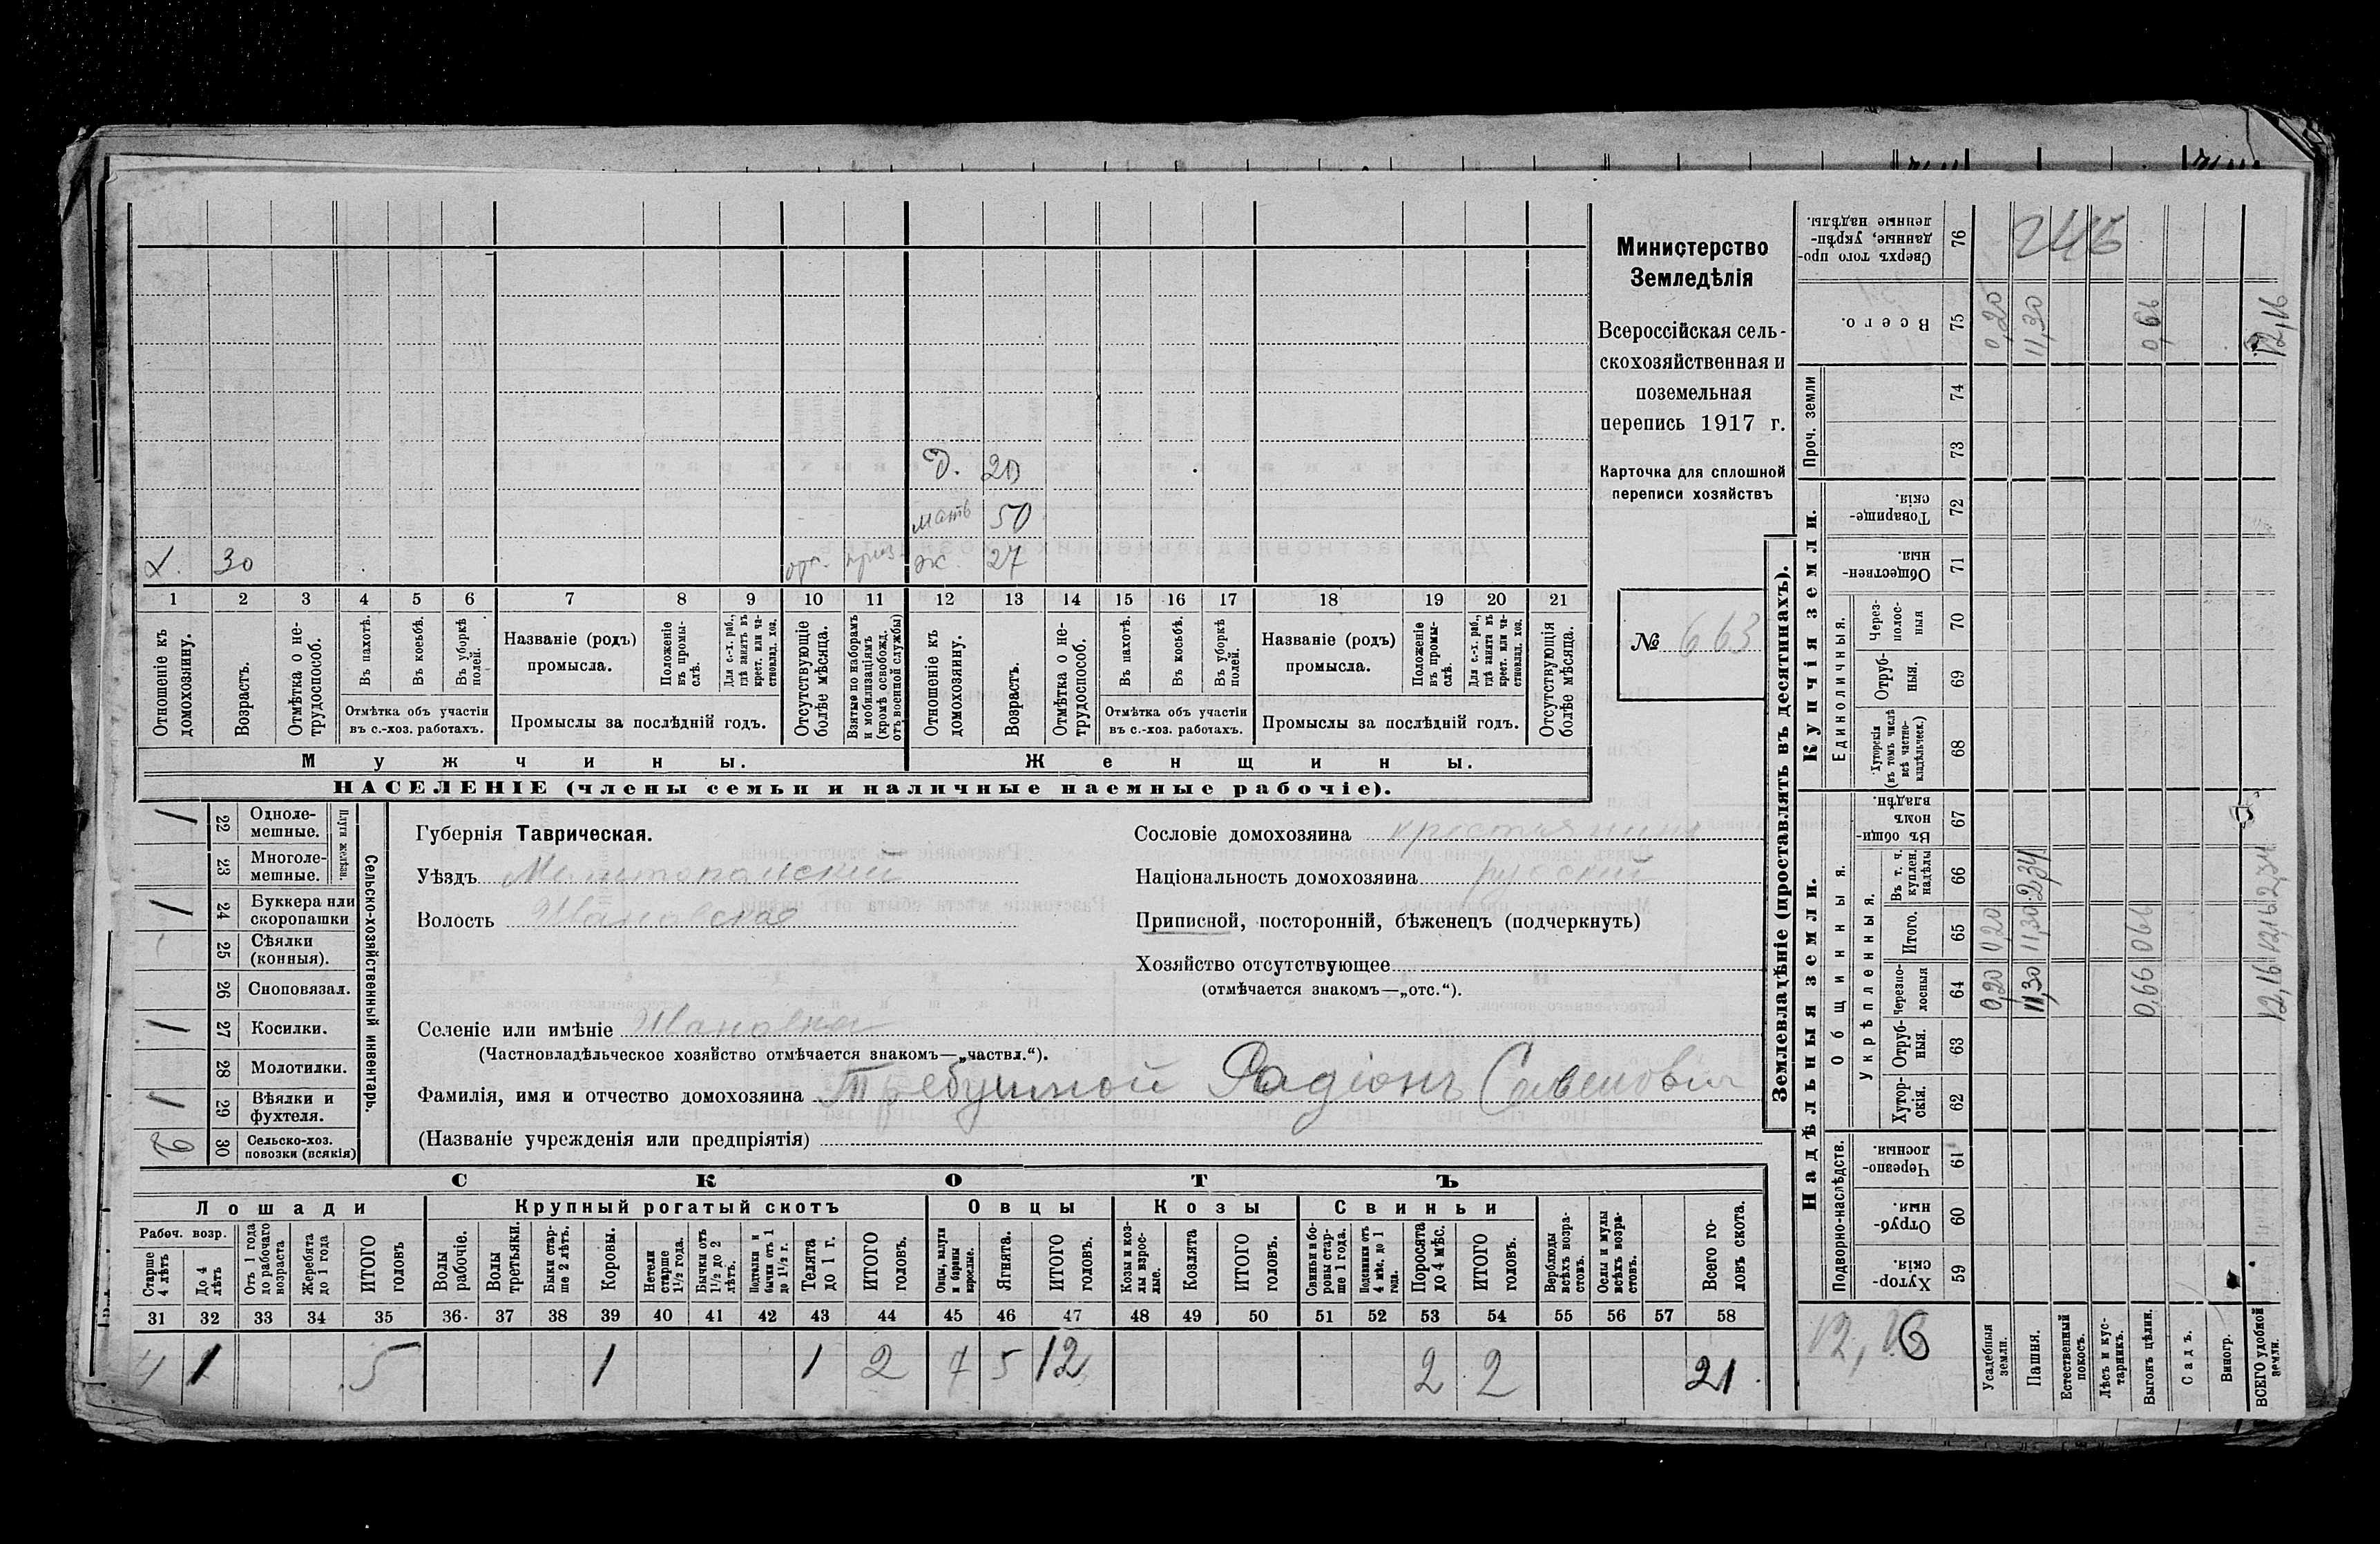 Министерство
Земледѣлія
Всероссійская сель-
скохозяйственная и
поземельная
перепись 1917 г.
Карточка для сплошной
переписи хозяйствъ
№ 663
Д. 20
мать 50
Х. 30 отс. приз ж. 27
1 2 3 4 5 6 7 8 9 10 11 12 13 14 15 16 17 18 19 20 21
Отношеніе къ домохозяину.
Возрастъ.
Отмѣтка о не-трудоспособ.
Въ пахотѣ.
Въ косьбѣ.
Въ уборкѣ полей.
Отмѣтка объ участіи въ с.-хоз. работахъ.
Названіе (родъ) промысла.
Положеніе въ промы-слѣ.
Для с.-х. раб., гдѣ занятъ въ крест. или ча-стновлад. хоз.
Промыслы за послѣдній годъ.
Отсутствующіе болѣе мѣсяца.
Взятые по наборамъ и мобилизаціямъ (кромѣ освобожд. отъ военной службы)
Отношеніе къ домохозяину.
Возрастъ.
Отмѣтка о не-трудоспособ.
Въ пахотѣ.
Въ косьбѣ.
Въ уборкѣ полей.
Отмѣтка объ участіи въ с.-хоз. работахъ.
Названіе (родъ) промысла.
Положеніе въ промы-слѣ.
Для с.-х. раб., гдѣ занята въ крест. или ча-стновлад. хоз.
Промыслы за послѣдній годъ.
Отсутствующія болѣе мѣсяца.
Мужчины. Женщины.
НАСЕЛЕНІЕ (члены семьи и наличные наемные рабочіе).
Сельско-хозяйственный инвентарь.
Плуги желѣзн.
1 22 Одноле-мешные.
23 Многоле-мешные.
1 24 Буккера или скоропашки
25 Сѣялки (конныя).
26 Сноповязал.
1 27 Косилки.
28 Молотилки.
1 29 Вѣялки и фухтеля.
30 Сельско-хоз. повозки (всякія)
Губернія Таврическая.
Уѣздъ Мелитопольскій
Волость Шановская
Сословіе домохозяина крестьянинъ
Національность домохозяина русскій
Приписной, посторонній, бѣженецъ (подчеркнуть)
Хозяйство отсутствующее
(отмѣчается знакомъ—„отс.“).
Селеніе или имѣніе Шановка
(Частновладѣльческое хозяйство отмѣчается знакомъ—„частвл.“).
Фамилія, имя и отчество домохозяина Требушной Радіонъ Савеловичъ
(Названіе учрежденія или предпріятія)
СКОТЪ
Лошади Крупный рогатый скотъ Овцы Козы Свиньи
Рабоч. возр.
Старше 4 лѣтъ
До 4 лѣтъ
Отъ 1 года до рабочаго возраста
Жеребята до 1 года
ИТОГО головъ
Волы рабочіе.
Волы третьяки.
Быки стар-ше 2 лѣтъ.
Коровы.
Нетели старше 1½ года.
Бычки отъ 1½ до 2 лѣтъ.
Подтелки и бычки отъ 1 до 1½ г.
Телята до 1 г.
ИТОГО головъ.
Овцы, валухи и бараны взрослые.
Ягнята.
ИТОГО головъ.
Козы и коз-лы взрос-лые.
Козлята
ИТОГО головъ.
Свиньи и бо-ровы стар-ше 1 года.
Подсвинки отъ 4 мѣс. до 1 года.
Поросята до 4 мѣс.
ИТОГО головъ.
Верблюды всѣхъ возра-стовъ.
Ослы и мулы всѣхъ возра-стовъ.
Всего го-ловъ скота.
31 32 33 34 35 36 37 38 39 40 41 42 43 44 45 46 47 48 49 50 51 52 53 54 55 56 57 58
4 1 5 1 1 2 7 5 12 2 2 21
Землевладѣніе (проставлять въ десятинахъ).
Купчія земли.
Надѣльныя земли.
Проч. земли
Единоличныя.
Общинныя.
Укрѣпленныя.
Подворно-наслѣдств.
Сверхъ того про-данные, укрѣп-ленные надѣлы. 76 246
Всего. 75 0,20 11,30 0,66 12,16
74
73
Товарище-скія. 72
Обществен-ныя. 71
Через-полос-ныя 70
Отруб-ныя. 69
Хуторскія (въ томъ числѣ всѣ частно-владѣльческ.) 68
Въ общи-номъ владѣн. 67
Въ т. ч. куплен. надѣлы 66 2,34 2,34
Итого. 65 0,20 11,30 0,66 12,16
Черезпо-лосныя 64 0,20 11,30 0,66 12,16
Отруб-ныя. 63
Хутор-скія. 62
Черезпо-лосныя. 61
Отруб-ныя. 60
Хутор-скія. 59
12,16
Усадебныя земли.
Пашня.
Естественный покосъ.
Лѣсъ и кус-тарникъ.
Выгонъ цѣлин.
Садъ.
Виногр.
ВСЕГО удобной земли.